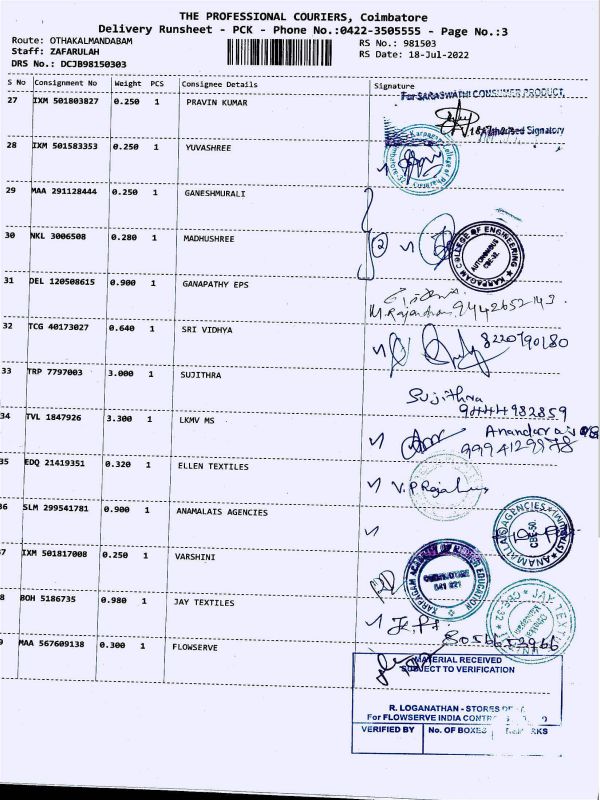 THE PROFESSIONAL COURIERS, Coimbatore
Delivery Runsheet - PCK - Phone No.:0422-3505555 - Page No.:3
Route: OTHAKALMANDABAM
RS No.: 981503
Staff: ZAFARULAH
RS Date: 18-Jul-2022
DRS No.: DCJB98150303
S No Consignment No Weight PCS Consignee Details Signature
For SARASWATHI CONSUMER PRODUCT
27 IXM 501803827 0.250 1 PRAVIN KUMAR
Signatory
28 IXM 501583353 0.250 1 YUVASHREE
29 MAA 291128444 0.250 1 GANESHMURALI
30 NKL 3006508 0.280 1 MADHUSHREE
2
KARPAGAM COLLEGE OF ENGINEERING
AUTONOMOUS
CBE-32.
31 DEL 120508615 0.900 1 GANAPATHY EPS
M.Rajendran 9442652143.
32 TCG 40173027 0.640 1 SRI VIDHYA
8220790180
33 TRP 7797003 3.000 1 SUJITHRA
Sujithra
9444982859
34 TVL 1847926 3.300 1 LKMV MS
9994129978
35 EDQ 21419351 0.320 1 ELLEN TEXTILES
36 SLM 299541781 0.900 1 ANAMALAIS AGENCIES
CBE-50.
7 IXM 501817008 0.250 1 VARSHINI
KARPAGAM ACADEMY OF HIGHER EDUCATION
COIMBATORE
641 021
8 BOH 5186735 0.980 1 JAY TEXTILES
JAY TEXTILES
9 MAA 567609138 0.300 1 FLOWSERVE
MATERIAL RECEIVED
SUBJECT TO VERIFICATION
R. LOGANATHAN - STORES
For FLOWSERVE INDIA
VERIFIED BY No. OF BOXES